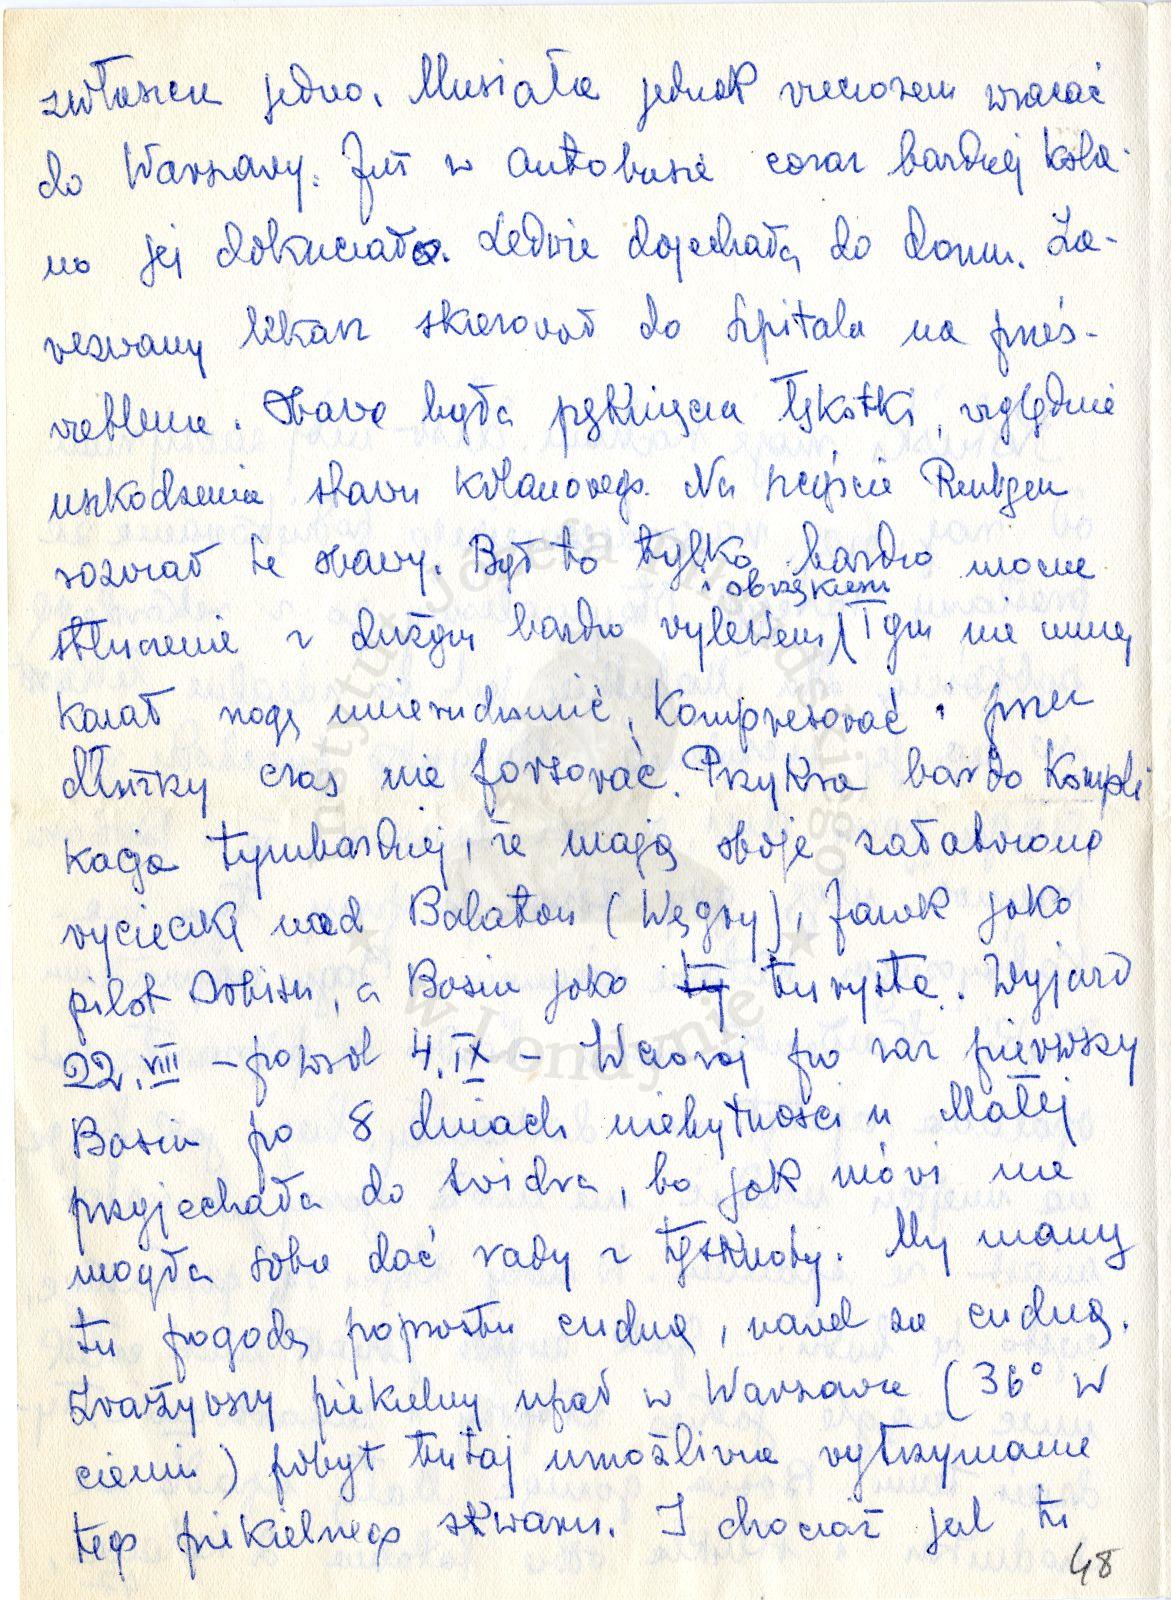 zwłaszcza jedno. Musiała jednak wieczorem wracać
do Warszawy. Już w autobusie coraz bardziej kola-
no jej dokuczało. Ledwie dojechała do domu. Za-
wezwany lekarz skierował do szpitala na prześ-
wietlenie. Obawa była pęknięcia łękotki, względnie
uszkodzenia stawu kolanowego. Na szczęście Rentgen
rozwiał te obawy. Był to tylko bardzo mocne
i obrzękiem
stłuczenie z dużym bardzo wylewem. Tym nie mniej
kazał nogę unieruchomić, kompresować i przez
dłuższy czas nie forsować. Przykra bardzo kompli
kacja tymbardziej, że mają oboje załatwioną
wycieczkę nad Balaton (Węgry), Janek jako
pilot Orbisu, a Basia jako ty turystę. Wyjazd
22.VIII – powrót 4.IX – Wczoraj po raz pierwszy
Basia po 8 dniach niebytności u Małej
przyjechała do Świdra, bo jak mówi nie
mogła sobie dać rady z tęsknoty. My mamy
tu pogodę poprostu cudną, nawet za cudną.
Zważywszy piekielny upał w Warszawie (36° w
cieniu) pobyt tutaj umożliwia wytrzymanie
tego piekielnego skwaru. I chociaż jest tu
48
Instytut Józefa Piłsudskiego
w Londynie